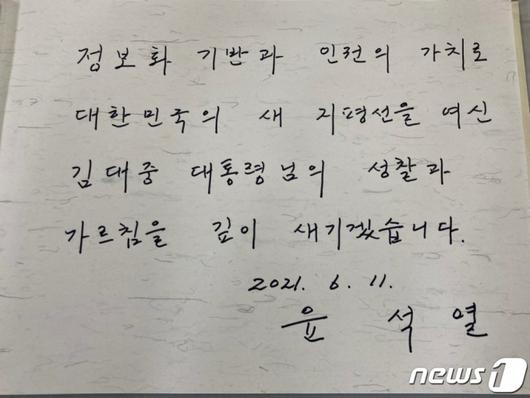 정보화 기반과 인권의 가치로
대한민국의 새 지평선을 여신
김대중 대통령님의 성찰과
가르침을 깊이 새기겠습니다.
2021. 6. 11.
윤 석 열
news1